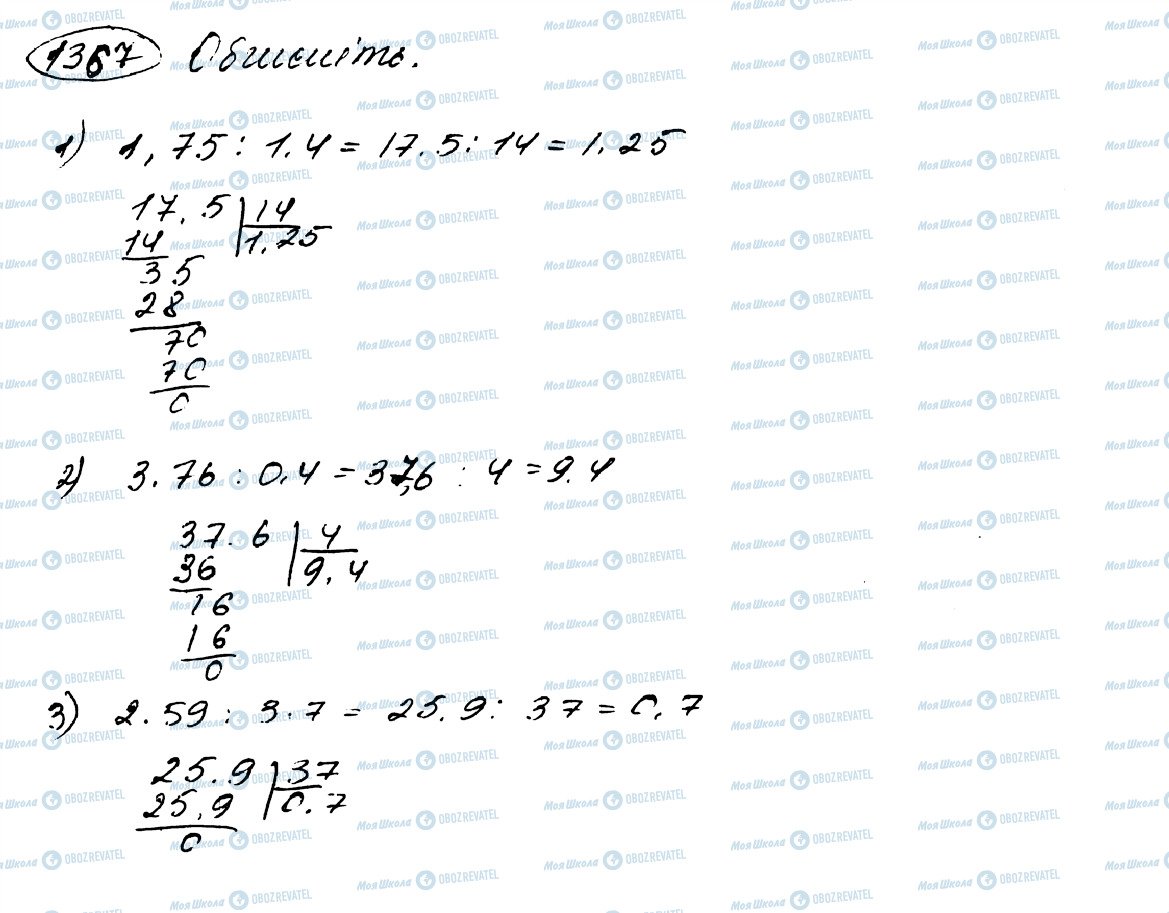 1367 Обчисліть.
1) 1,75 : 1.4 = 17.5 : 14 = 1.25
17.5 | 14
14 1.25
35
28
70
70
0
2) 3.76 : 0.4 = 37,6 : 4 = 9.4
37.6 | 4
36 9.4
16
16
0
3) 2.59 : 3.7 = 25.9 : 37 = 0.7
25.9 | 37
25.9 0.7
0
Моя Школа OBOZREVATEL